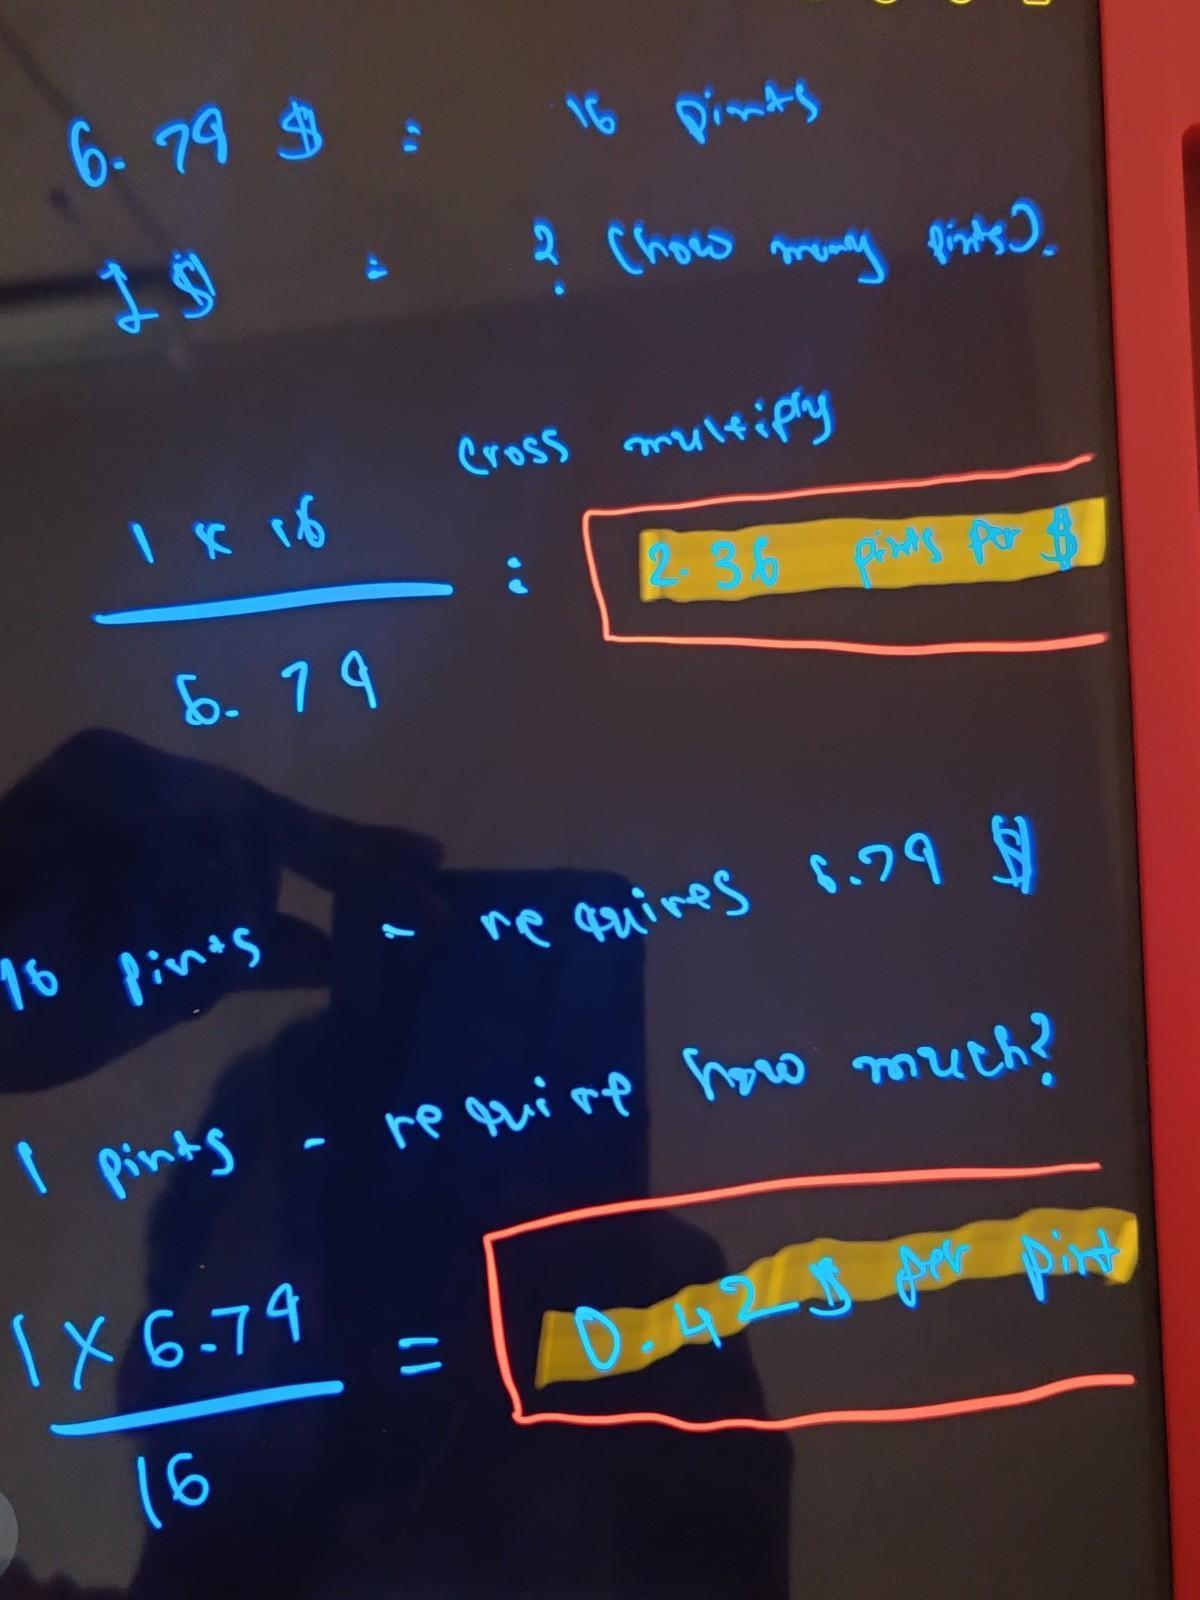 6.79 $ = 16 pints
1 $ = ? (how many pints).
cross multiply
1 x 16
6.79
= 2.36 pints per $
16 pints - requires 6.79 $
1 pints - require how much?
1 x 6.79
16
= 0.42 $ per pint